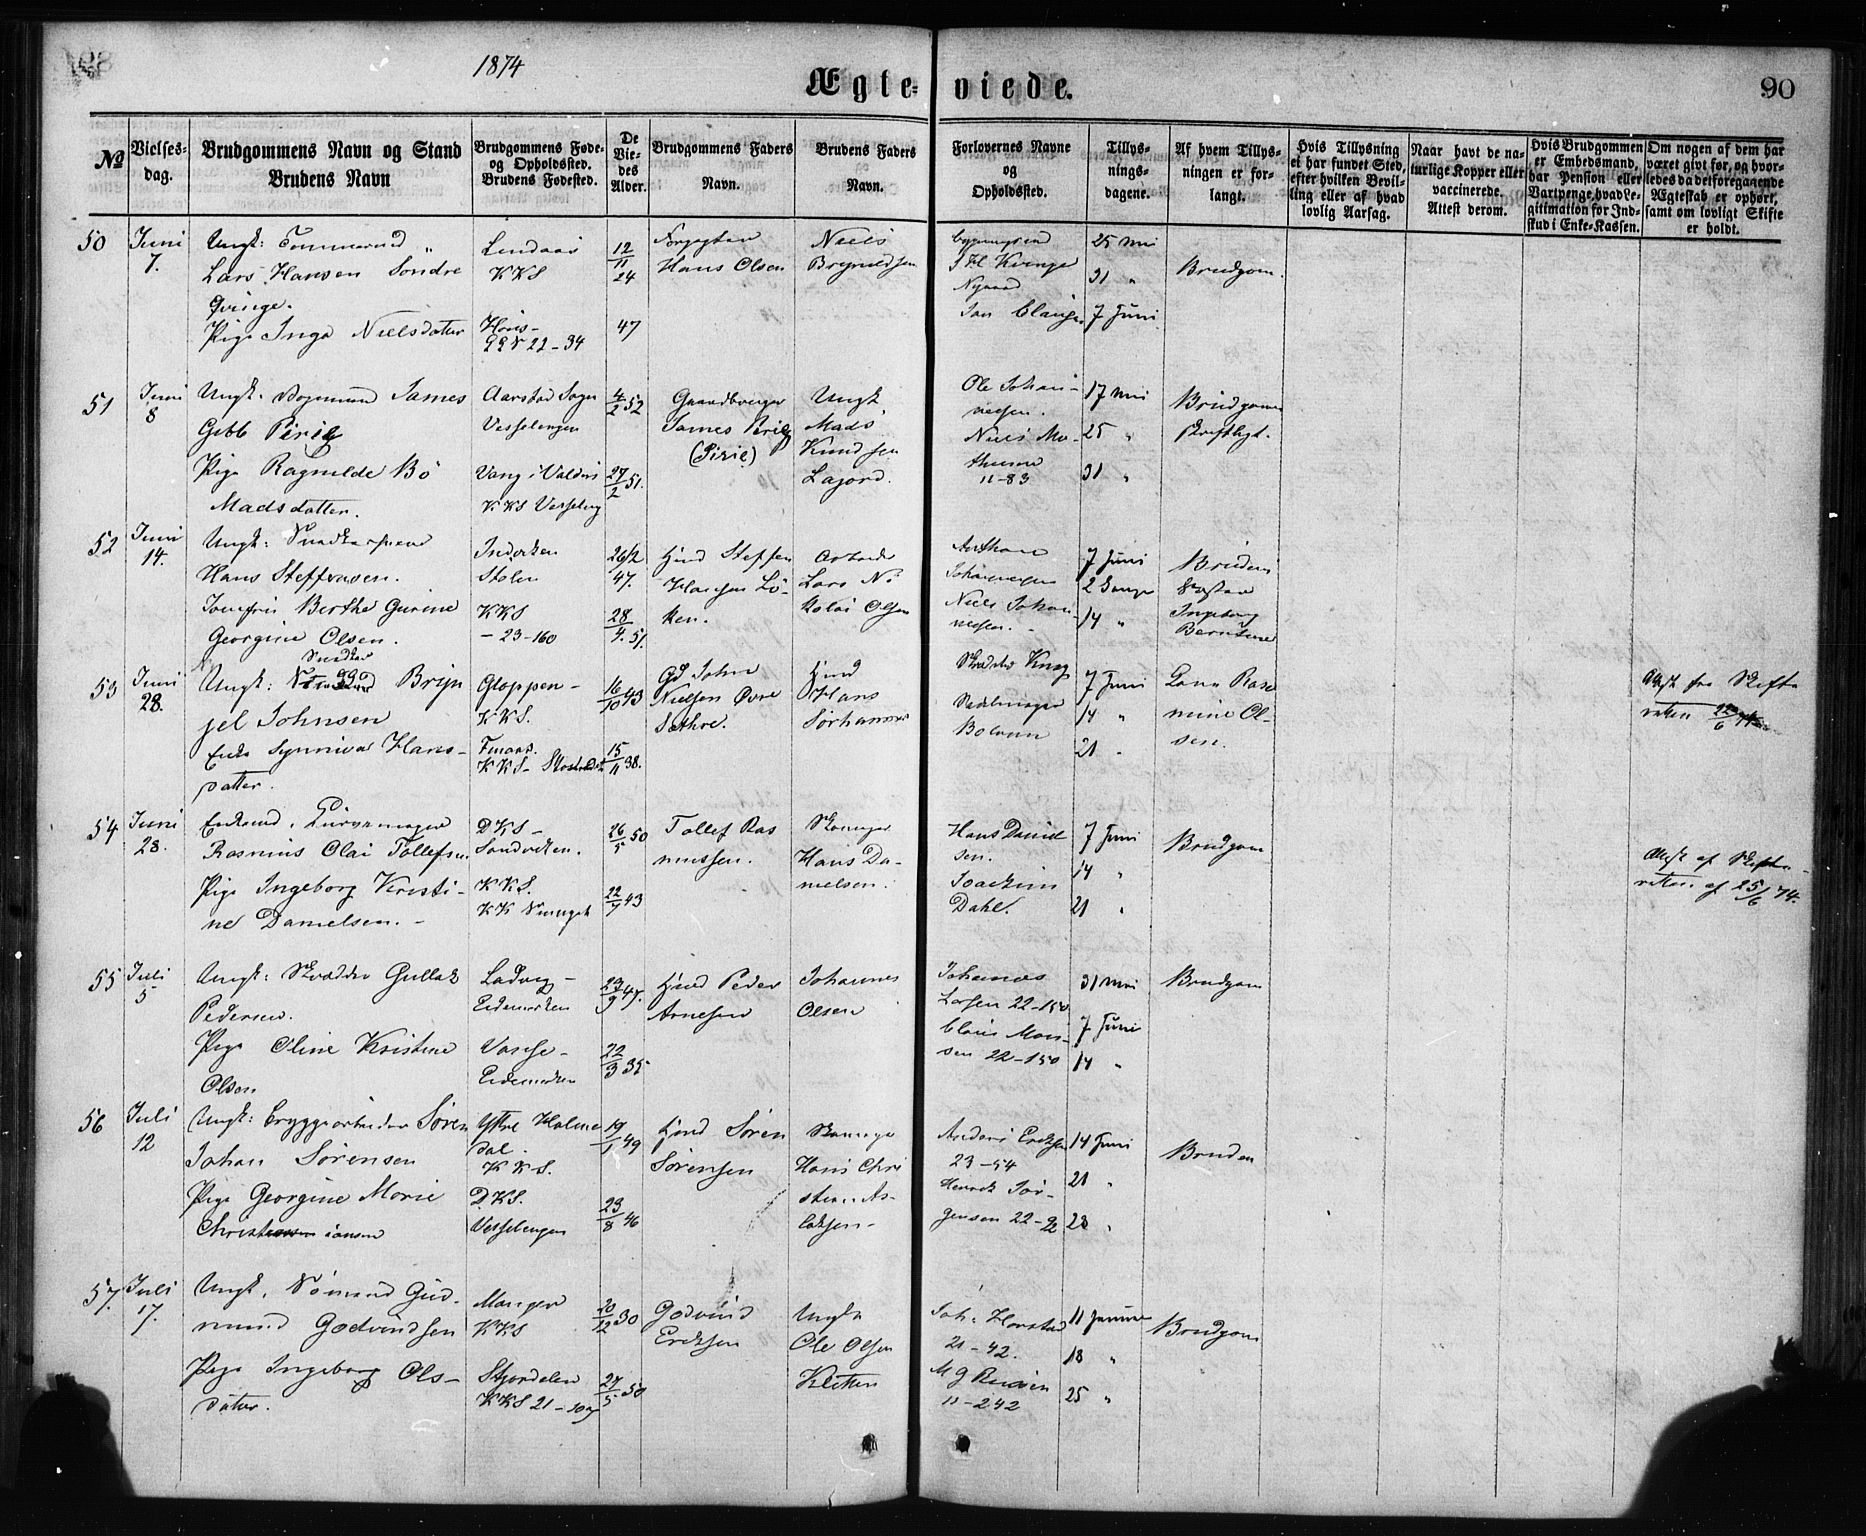 1874
Ægte-
viede.
90
No
Vielses-
dag.
Brudgommens Navn og Stand
Brudens Navn
Brudgommens Føde-
og Opholdssted.
Brudens Fødested.
De
Vie-
des
Alder.
Brudgommens Faders
Navn.
Brudens Faders
Navn.
Forlovernes Navne
og
Opholdssted.
Tillys-
nings-
dagene.
Af hvem Tillys-
ningen er for-
langt.
Hvis Tillysning
ei har fundet Sted,
efter hvilken Bevil-
ling eller af hvad
lovlig Aarsag.
Naar havt de na-
turlige Kopper eller
vaccinerede.
Attest derom.
Hvis Brudgommen
er Embedsmand,
har Pension eller
Vartpenge, hvad Le-
gitimation for Ind-
skud i Enke-Kassen.
Om nogen af dem har
været givt før, og hvor-
ledes da det foregaaende
Ægteskab er ophørt,
samt om lovligt Skifte
er holdt.
50
Juni
7.
Ungk: Tømmermd
Lars Hansen Søndre
Qvinge.
Pige Inga Nielsdatter
Lindaas
KKS
Hous-
22-34
12
11
24
47
Hans Olsen
Niels
Brynildsen
Kvinge
Nygaard
25 Mai
31 "
7 Juni
Brudgom.
51
Juni
8
Ungk: James
Gibb Pirie
Pige Ragnilde Bö
Madsdatter.
Aarstad Sogn
Vesselengen
Vang i Valders
KKS Vesseleng
4/2 52
27/2 51.
Gaardbruger
James Pirie
(Pirie)
Ungk.
Mads
Knudsen
Lajord.
Ole Johan-
nesen.
Niels Ma-
thiesen
11-83
17 Mai
25 "
31 "
Brudgommen
skriftligt.
52
Juni
14.
Ungk: Snedkersvend
Hans Steffensen.
Jomfru Berthe Gurine
Georgine Olsen.
Indviken
Stølen
KKS
- 23-160
26/2
47.
28/4 51.
Hmd Steffen
Hansen Lö-
ken.
Arbeid
Lars Ni-
kolai Olsen
Anthon
Johannesen
Niels Johan-
nesen.
7 Juni
2 Gange
14 "
Brudens
Søster
Ingeborg
Berntine
53
Juni
28.
Snedker
Ungk: Bryn
jel Johnsen
Enke Synnive Hans-
datter.
Gloppen-
KKS.
KKS-
16/10 43
15/11 38.
Gd John
Nielsen Øvre
Sæthre.
Hmd
Hans
Sørhammer
Skrædder Krag
Sadelmager
7 Juni
14 "
21 "
Rase
mine Ol-
sen.
Attest fra Skifte
retten 22/6 74
54
Juni
28.
Enkemd.
Rasmus Olai Tollefsen
Pige Ingeborg Kristi-
ne Danielsen. -
DKS-
Sandviken.
KKS.
26/5 50
22/7 43
Tollef Ras
mussen.
Skomager
Hans Da-
nielsen.
Hans David
sen.
Joachim
Dahl.
7 Juni
14 "
21 "
Brudgom
Attest af Skifte-
retten af 25/6 74.
55
Juli
5
Ungk: Skrædder Gullak
Pedersen.
Pige Oline Kristine
Olsen
Ladvig-
Eidemarken
Eidemarken
23/9 47.
22/3 35
Hmd Peder
Arnesen
Johannes
Olsen
Johannes
Larsen 22-150
Claus Mon-
sen 22-150
31 Mai
7 Juni
14 "
Brudgom
56
Juli
12
Ungk: Bryggearbeider Sören
Johan Sörensen
Pige Georgine Marie
Christiansen
Ytre Holme
dal.
KKS.
DKS.
Vesselengen
19/1 49
23/8 46
Hmd Sören
Sörensen
Skomager
Hans Chri
stian As-
laksen-
Anders Eriksen
23-54
Henrik Jör-
gensen 22-92
14 Juni
21 "
28 "
Bruden
57.
Juli
17.
Ungk. Sömand Gud-
mund Godvindsen
Pige Ingeborg Ols-
datter.
Manger
KKS
Stjørdalen
KKS 21-107
20/12 30
27/5 50
Godvind
Eriksen
Ungk
Ole Olsen
Kletten
Joh. Harstad
21-42.
11-242
11 Januar
18 "
25 "
Brudgom